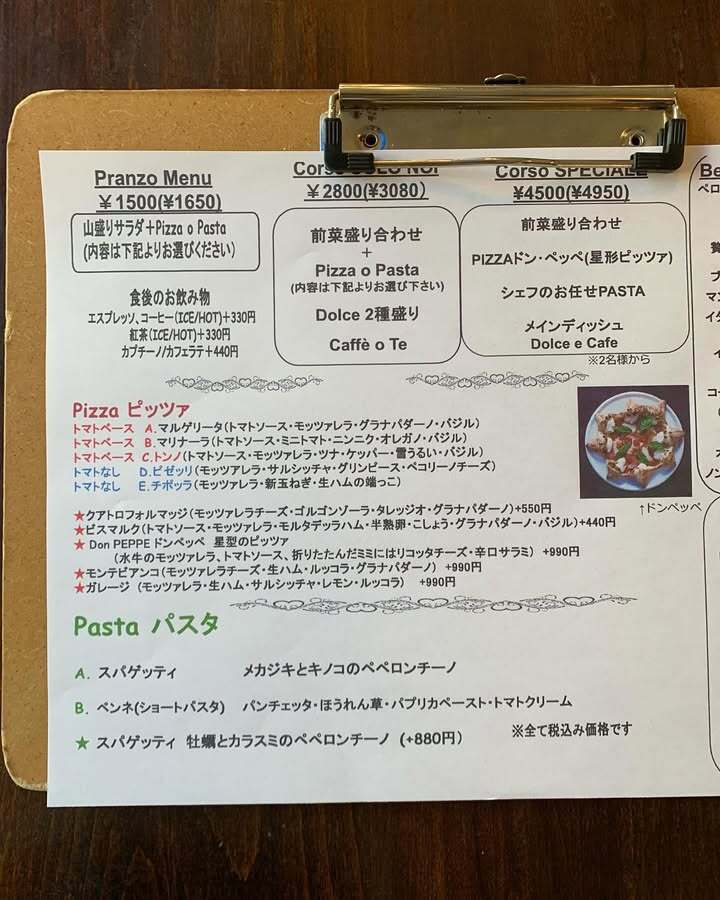 Pranzo Menu
¥1500(¥1650)
山盛りサラダ+Pizza o Pasta
(内容は下記よりお選びください)
食後のお飲み物
エスプレッソ、コーヒー(ICE/HOT)+330円
紅茶(ICE/HOT)+330円
カプチーノ/カフェラテ+440円
Corso SOLO NOI
¥2800(¥3080)
前菜盛り合わせ
+
Pizza o Pasta
(内容は下記よりお選び下さい)
Dolce 2種盛り
Caffè o Te
Corso SPECIALE
¥4500(¥4950)
前菜盛り合わせ
PIZZAドン・ペッペ(星形ピッツァ)
シェフのお任せPASTA
メインディッシュ
Dolce e Cafe
※2名様から
Pizza ピッツァ
トマトベース A.マルゲリータ(トマトソース・モッツァレラ・グラナパダーノ・バジル)
トマトベース B.マリナーラ(トマトソース・ミニトマト・ニンニク・オレガノ・バジル)
トマトベース C.トンノ(トマトソース・モッツァレラ・ツナ・ケッパー・雪うるい・バジル)
トマトなし D.ピゼッリ(モッツアレラ・サルシッチャ・グリンピース・ペコリーノチーズ)
トマトなし E.チポッラ(モッツァレラ・新玉ねぎ・生ハムの端っこ)
↑ドンペッペ
★クアトロフォルマッジ(モッツァレラチーズ・ゴルゴンゾーラ・タレッジオ・グラナパダーノ)+550円
★ビスマルク(トマトソース・モッツァレラ・モルタデッラハム・半熟卵・こしょう・グラナパダーノ・バジル)+440円
★ Don PEPPE ドンペッペ 星型のピッツァ
(水牛のモッツァレラ、トマトソース、折りたたんだミミにはリコッタチーズ・辛口サラミ) +990円
★モンテビアンコ(モッツァレラチーズ・生ハム・ルッコラ・グラナパダーノ) +990円
★ガレージ (モッツァレラ・生ハム・サルシッチャ・レモン・ルッコラ) +990円
Pasta パスタ
A. スパゲッティ メカジキとキノコのペペロンチーノ
B. ペンネ(ショートパスタ) パンチェッタ・ほうれん草・パプリカペースト・トマトクリーム
★ スパゲッティ 牡蠣とカラスミのペペロンチーノ (+880円)
※全て税込み価格です